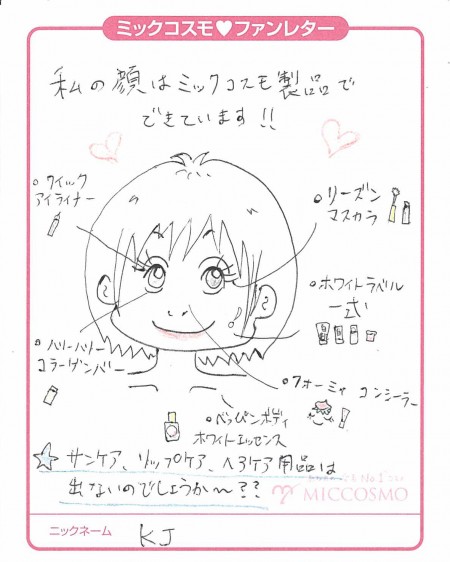 ミックコスモ♥ファンレター
私の顔はミックコスモ製品で
できています!!
クイック
アイライナー
リーズン
マスカラ
ホワイトラベル
一式
ハリーハリー
コラーゲンバー
フォーミィ コンシーラー
べっぴんボディ
ホワイトエッセンス
☆ サンケア、リップケア、ヘアケア用品は
出ないのでしょうか〜??
MICCOSMO
ニックネーム
KJ